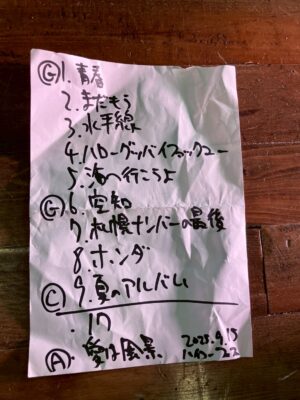 Ⓖ1. 青春
2. まだもう
3. 水平線
4. ハローグッバイファックユー
5. 海へ行こうよ
Ⓖ6. 空知
7. 札幌ナンバーの最後
8. ホンダ
Ⓒ9. 夏のアルバム
Ⓐ. 愛は風景
2025.9.15